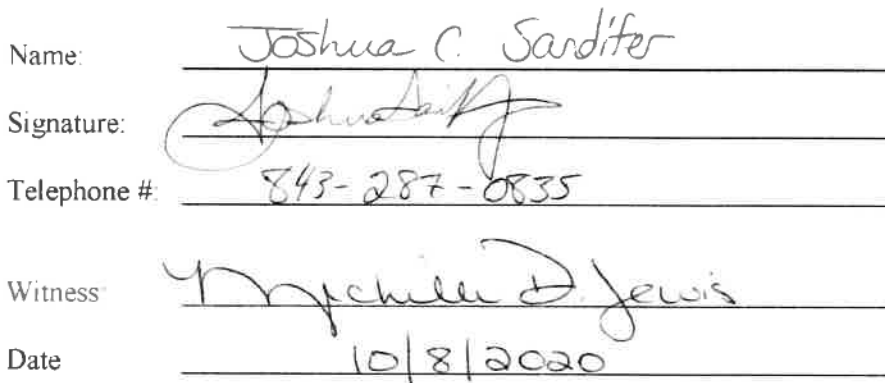 Name: Joshua C. Sandifer
Signature: Joshua
Telephone #: 843-287-0835
Witness: Michelle D. Lewis
Date 10/8/2020